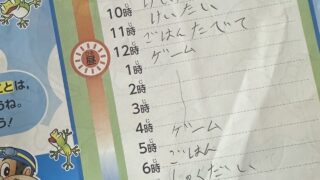 10時
けいたい
11時 ごはんたべて
12時 ゲーム
昼
1時
2時
3時
4時 ゲーム
5時 ごはん
6時 しゅくだい
ことは、
うね。
う!